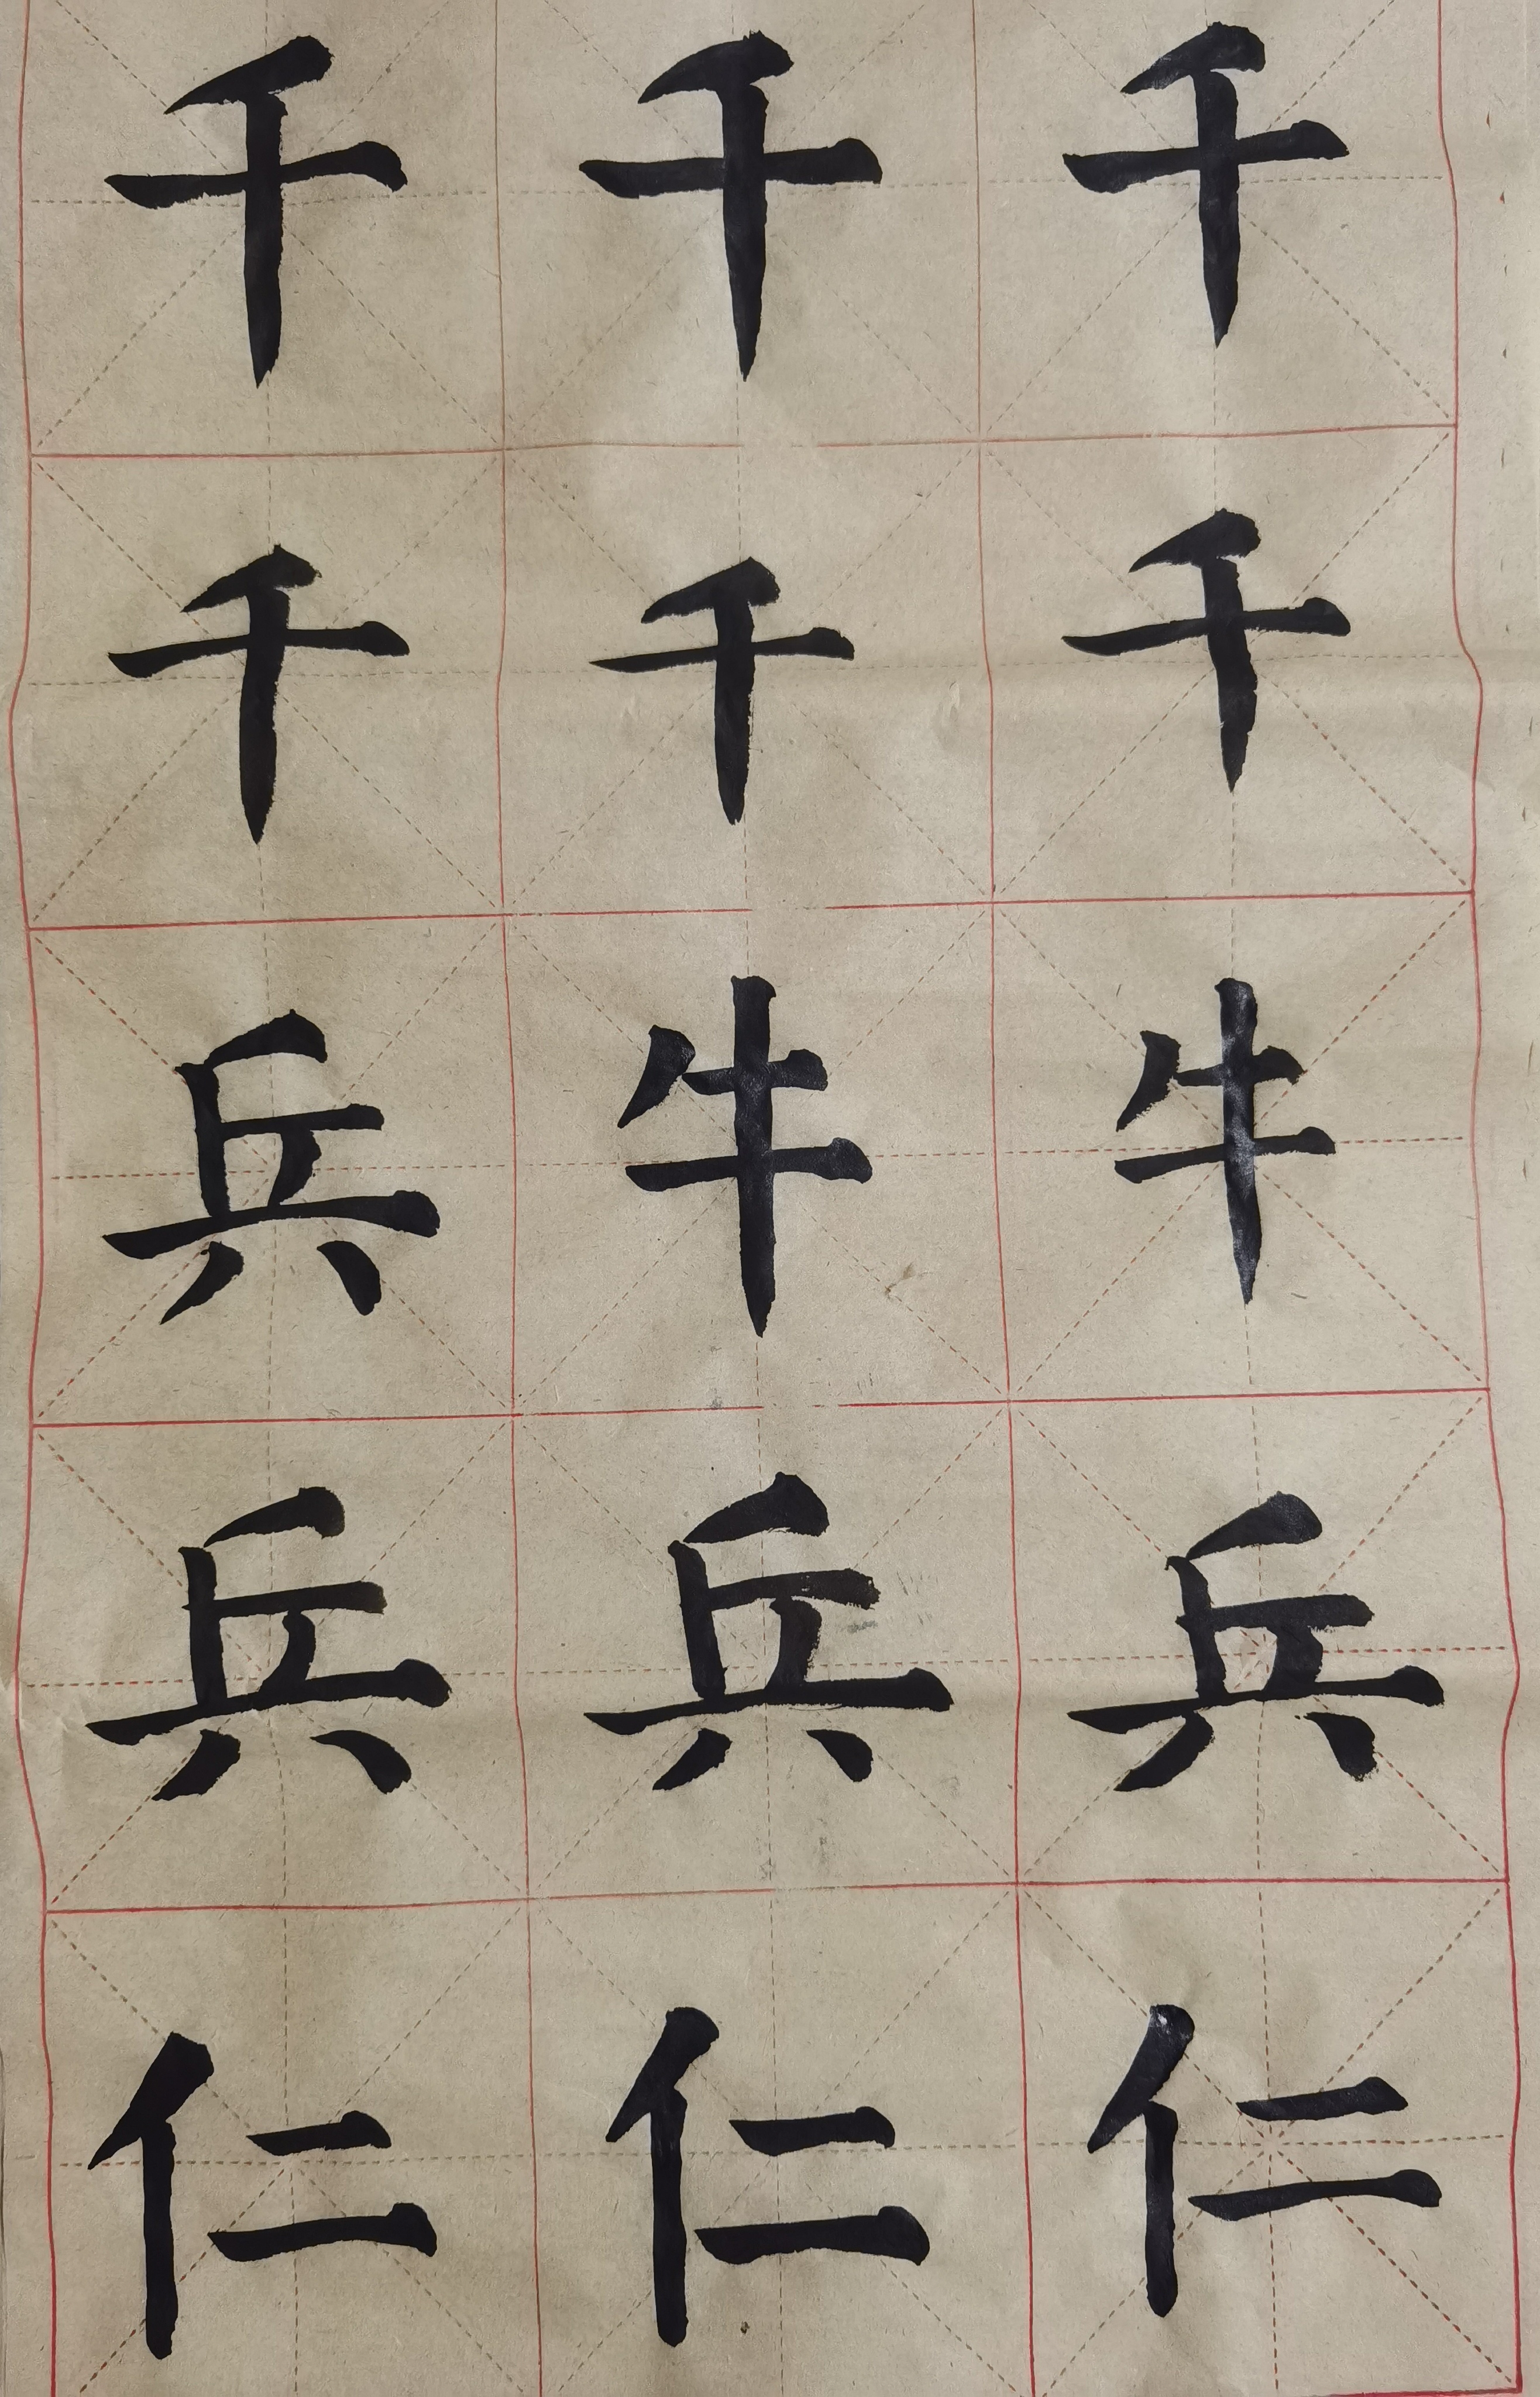 千千千
千千千
兵牛牛
兵兵兵
仁仁仁